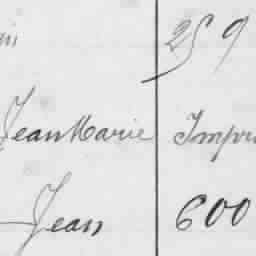 25 9
Jean Marie Impr
Jean 600